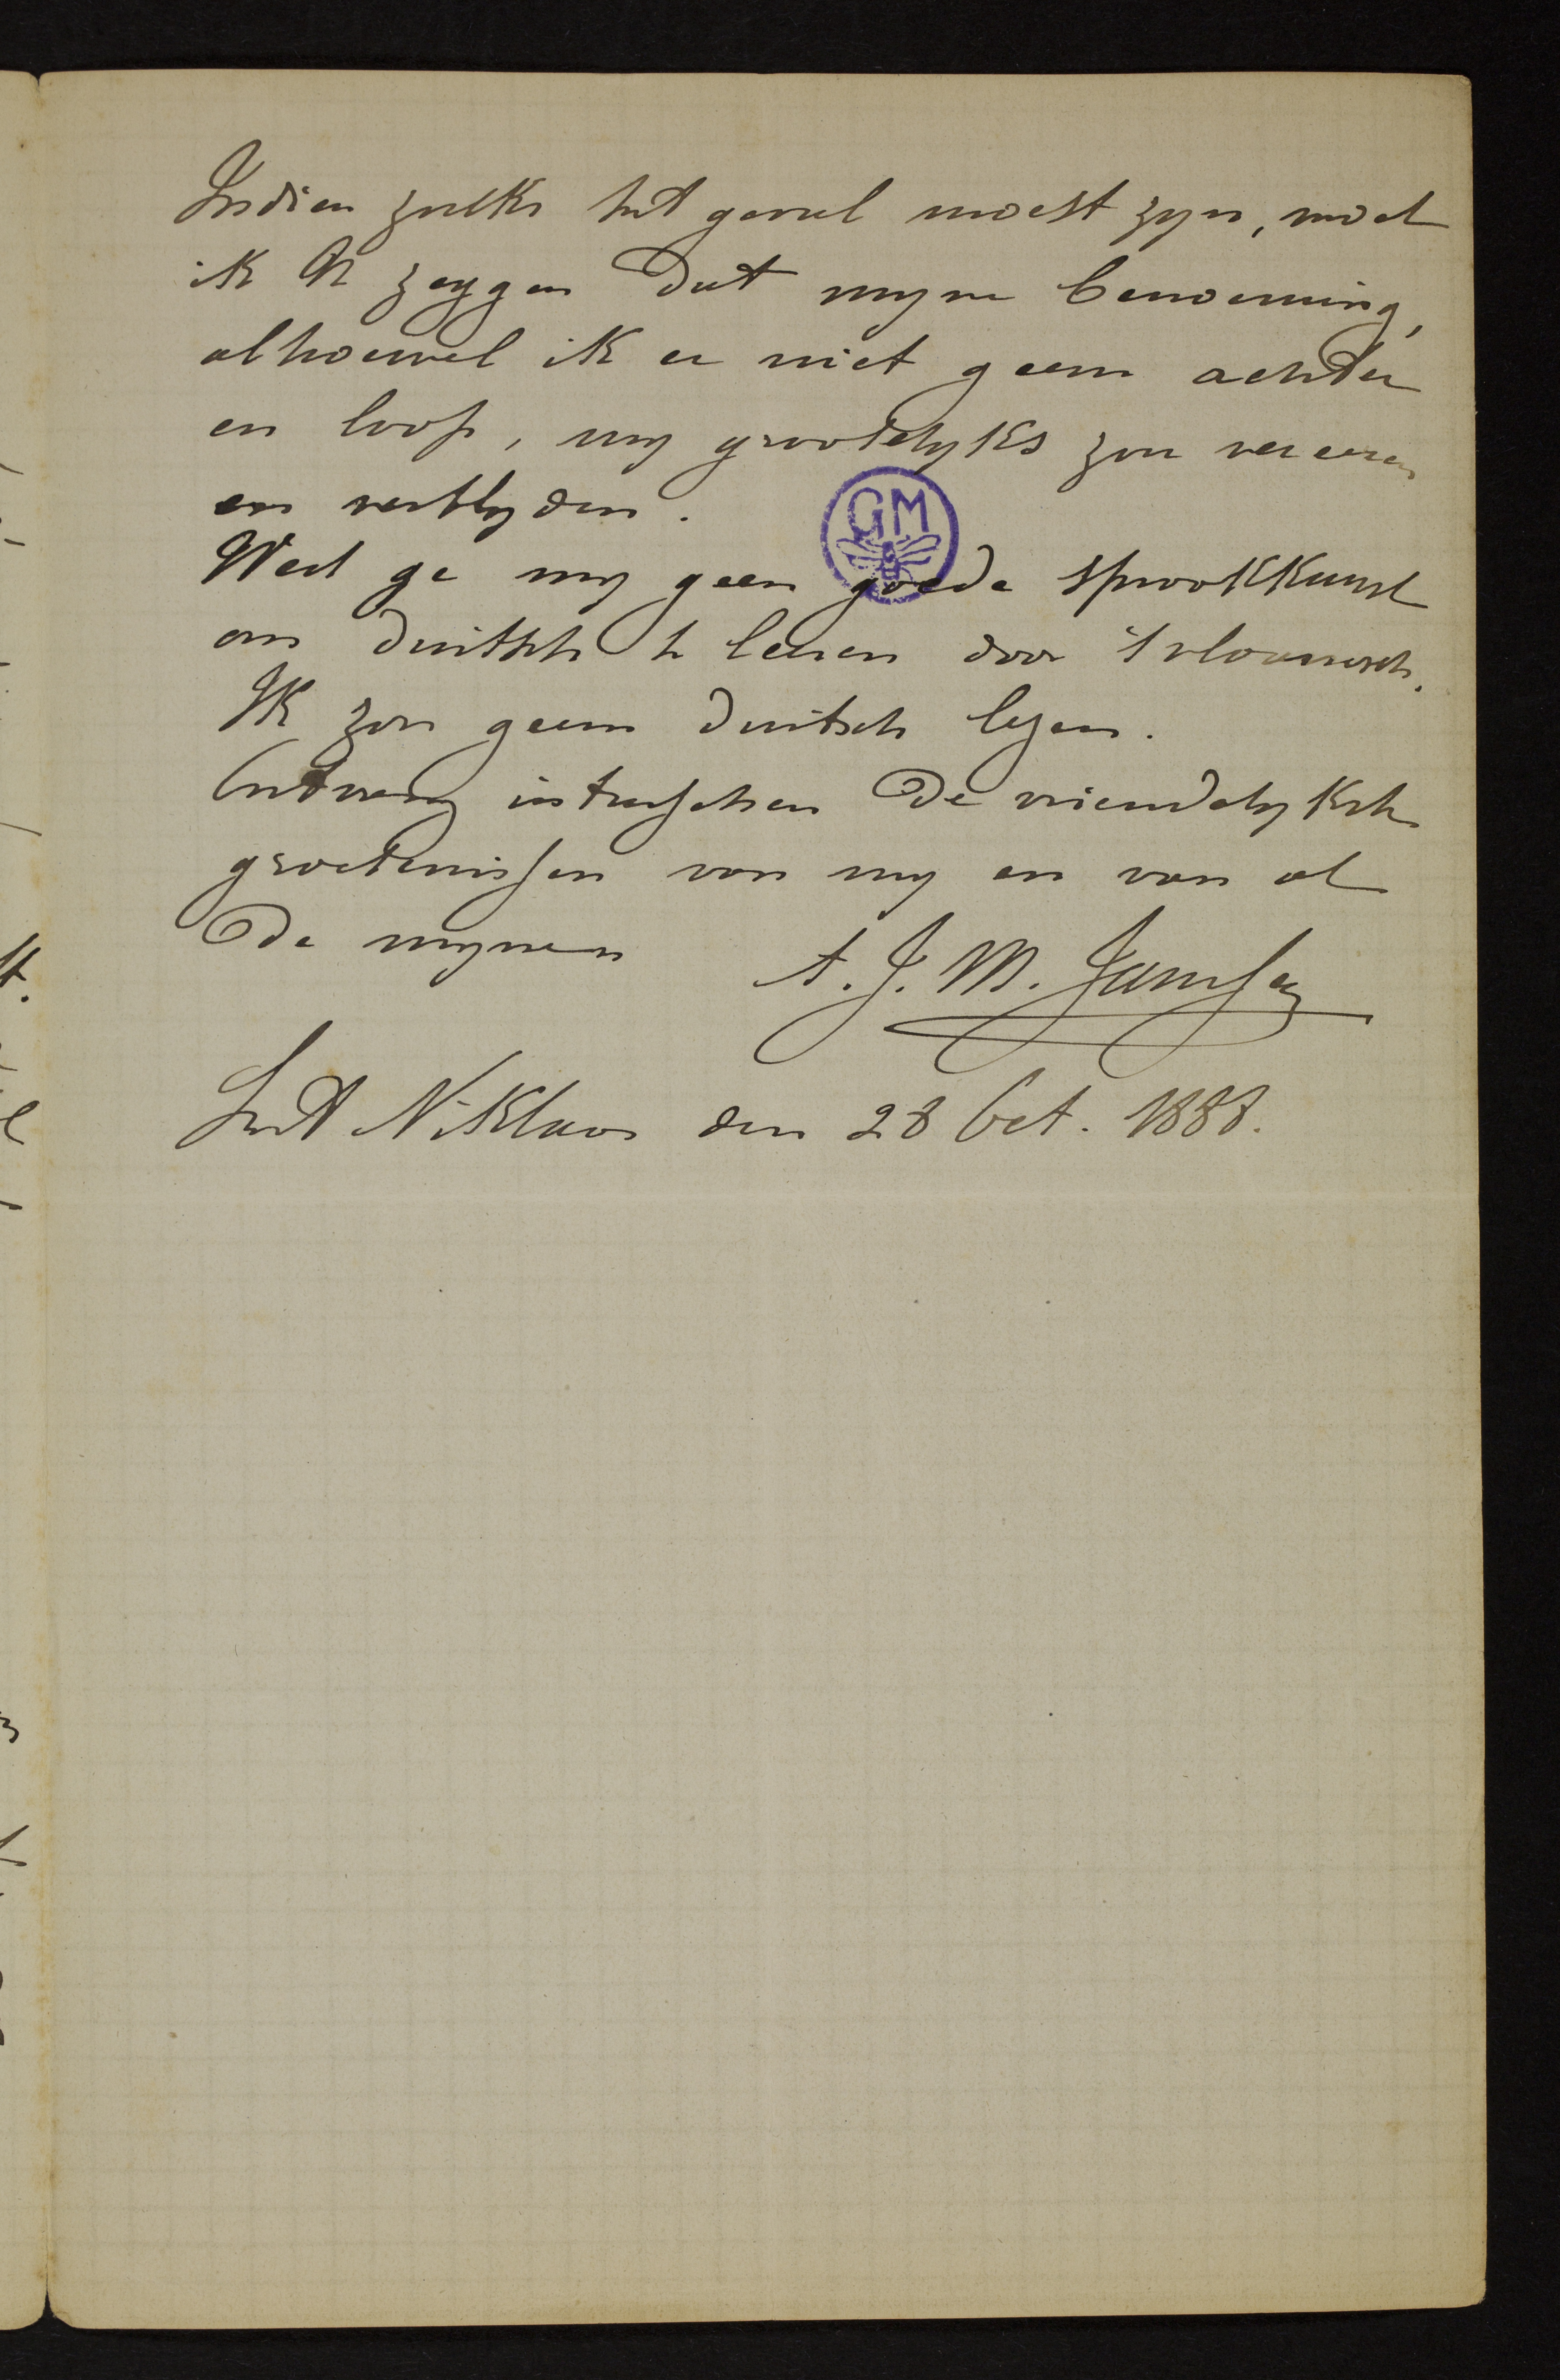 Indien zulks het geval moest zyn, moet
ik U zeggen dat myne benoeming,
alhoewel ik er niet geern achter
en loop, my grootelyks zou vereeren
en verblyden.
GM
Weet ge my geen goede spraakkunst
om duitsch te leeren door 't vlaamsch.
Ik zou geern duitsch lezen.
Ontvang intusschen de vriendelykste
groetenissen van my en van al
de mynen
A. J. M. Janssen
Sint Niklaas den 28 Oct. 1888.